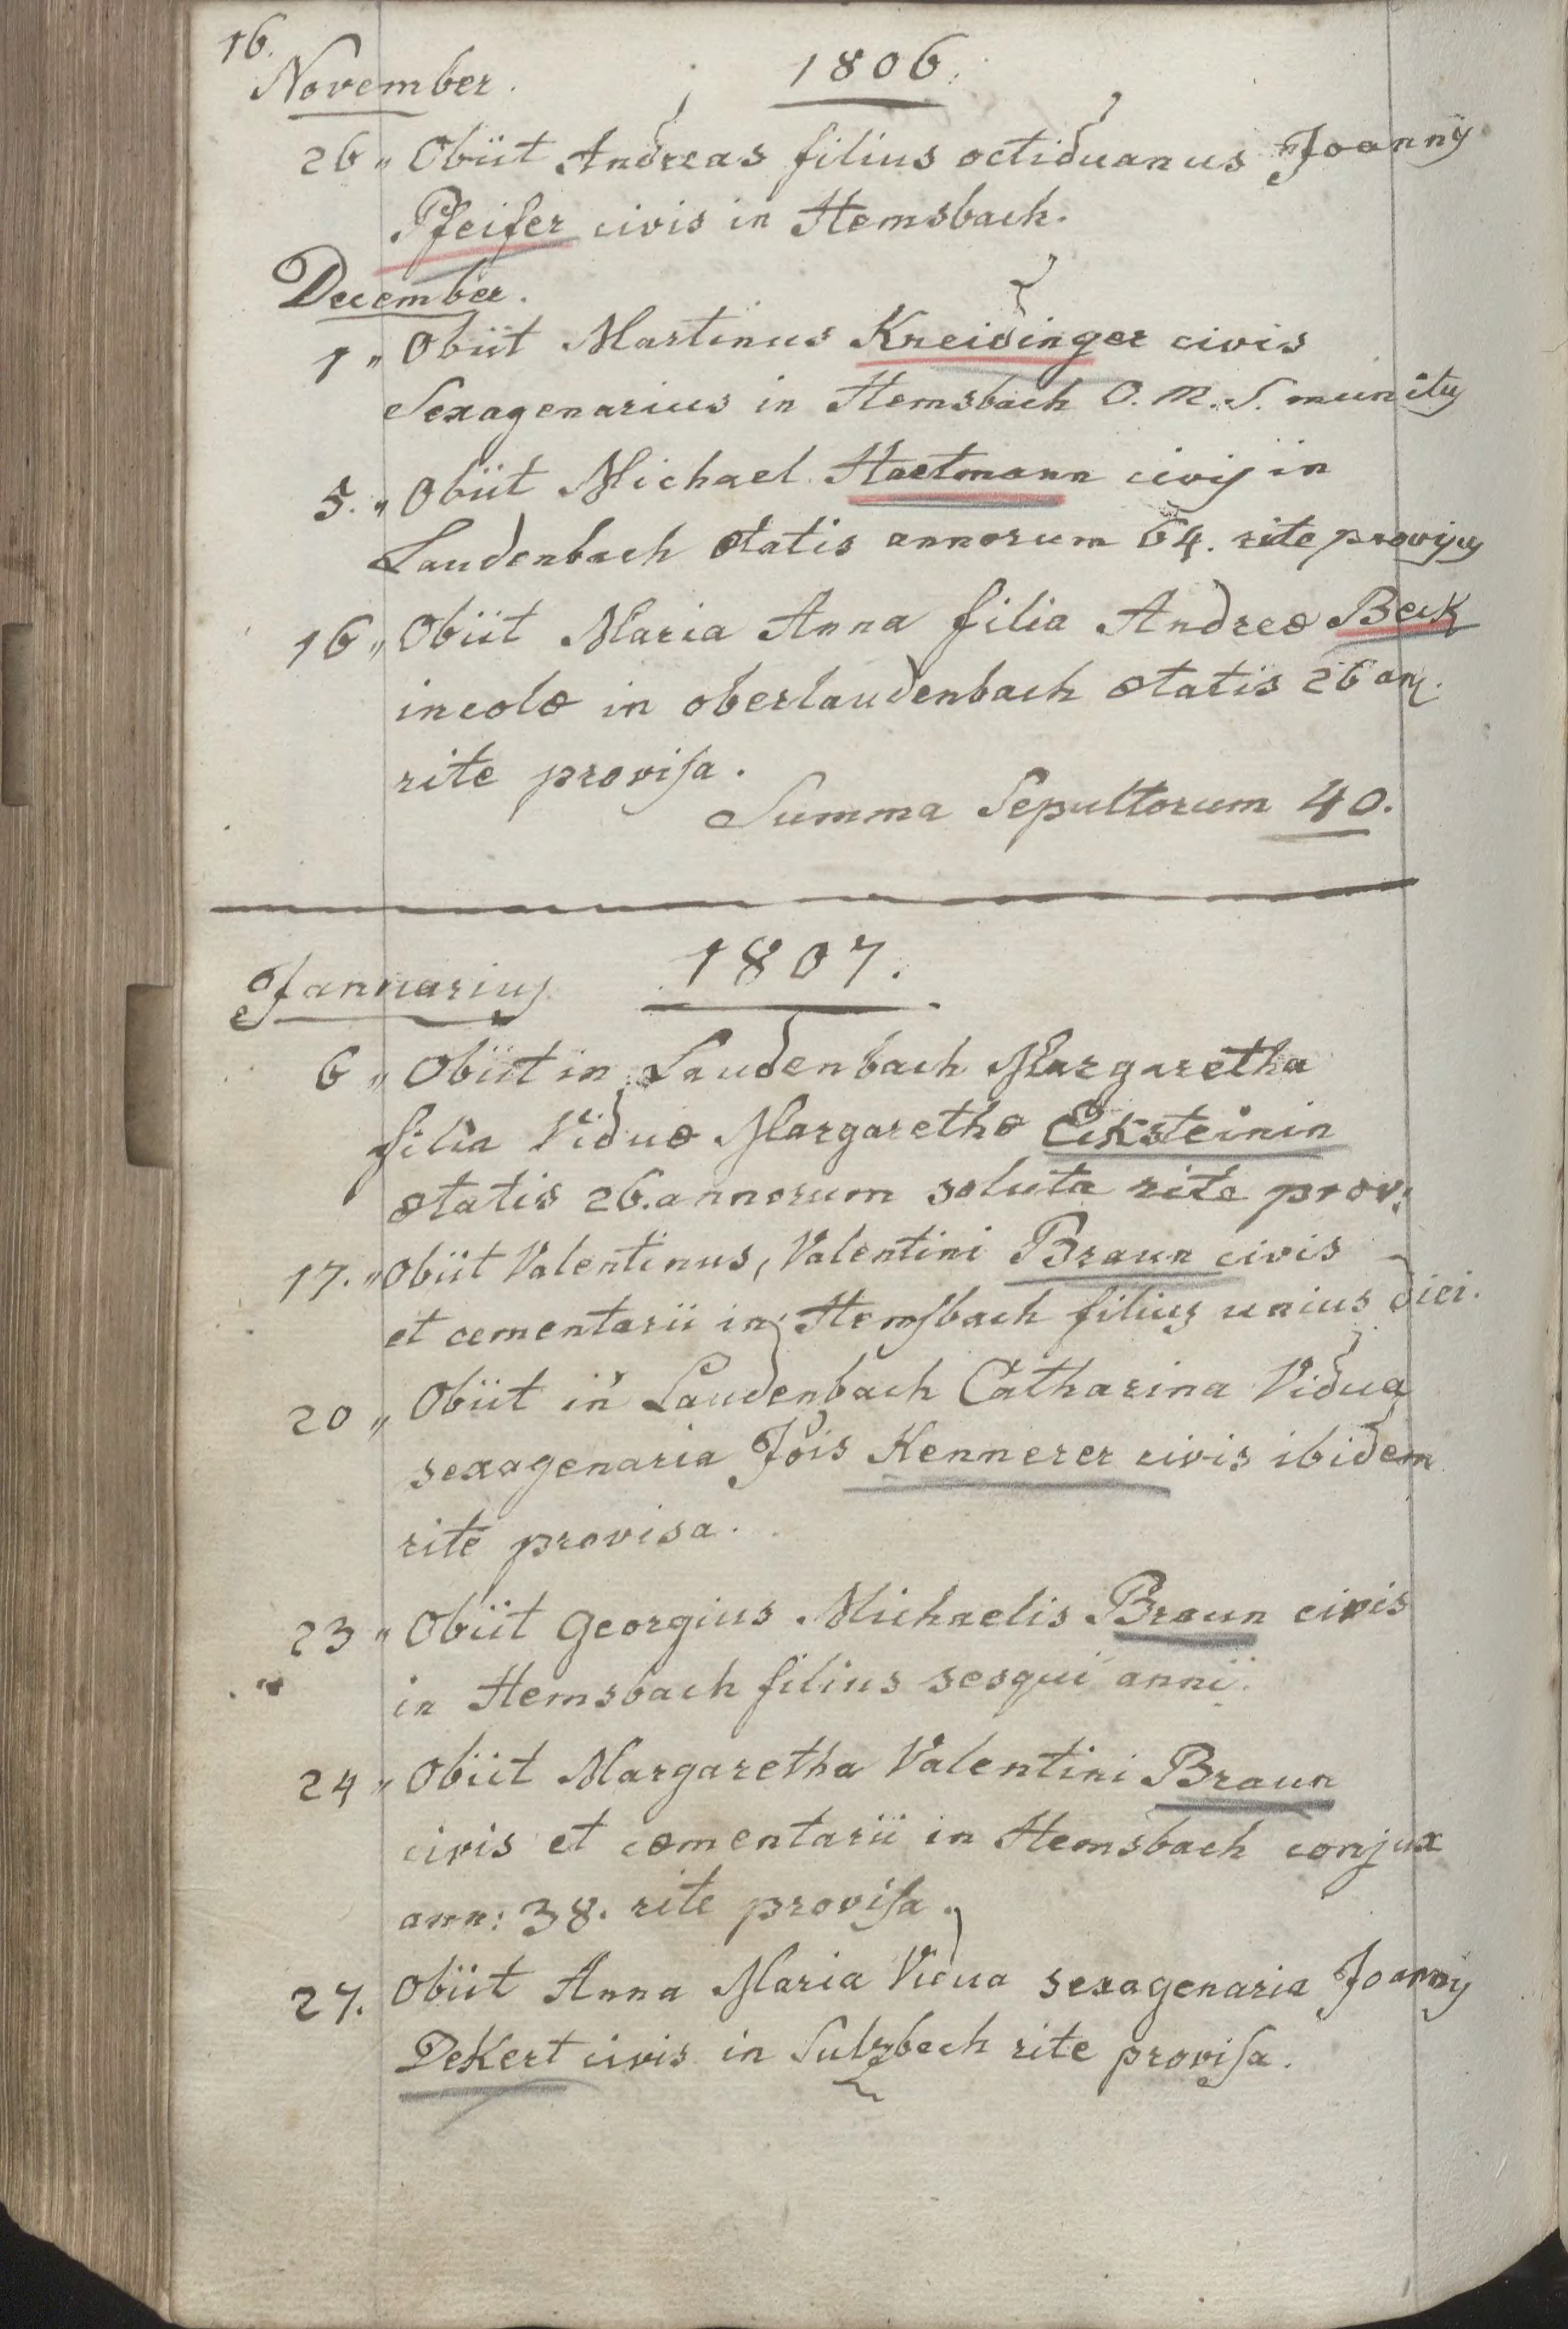 16.
November. 1806.
26 „ Obiit Andreas filius octiduanus Joannis
Pfeifer civis in Hemsbach.
December.
1 „ Obiit Martinus Kreidinger civis
Sexagenarius in Hemsbach O. M. S. munitus
5. „ Obiit Michael Hartmann civis in
Laudenbach ætatis annorum 64. rite provisus
16 „ Obiit Maria Anna filia Andreæ Beck
incolæ in oberlaudenbach ætatis 26 an̄.
rite provisa.
Summa Sepultorum 40.
Jannuarius 1807.
6 „ Obiit in Laudenbach Margaretha
filia Viduæ Margarethæ Ecksteinin
ætatis 26. annorum soluta rite prov:
17. „ Obiit Valentinus, Valentini Braun civis
et cementarii in Hemsbach filius unius diei.
20 „ Obiit in Laudenbach Catharina Vidua
sexagenaria Jōis Kennerer civis ibidem
rite provisa.
23 „ Obiit Georgius Michaelis Braun civis
in Hemsbach filius sesqui anni.
24 „ Obiit Margaretha Valentini Braun
civis et cæmentarii in Hemsbach conjux
ann: 38. rite provisa.
27. Obiit Anna Maria Vidua sexagenaria Joannis
DeKert civis in Sulzbach rite provisa.